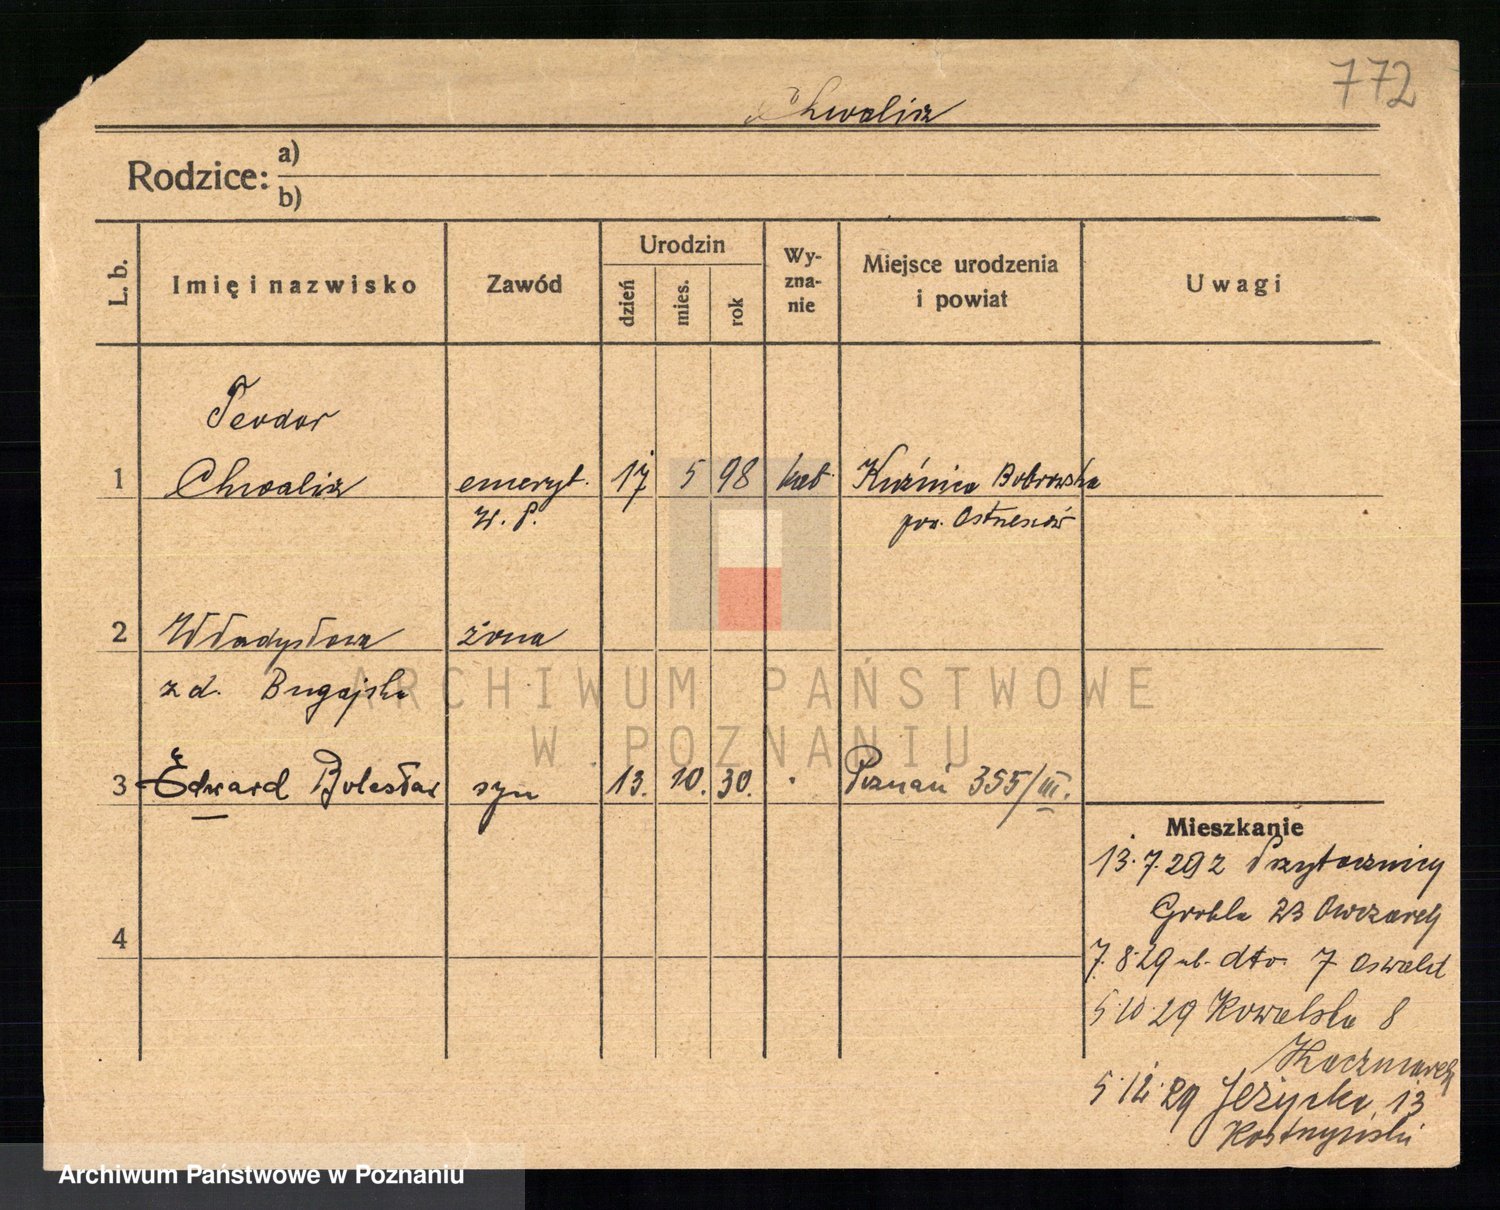 772
Chwalisz
Rodzice: a)
b)
L. b.
Imię i nazwisko
Zawód
Urodzin
dzień
mies.
rok
Wy-
zna-
nie
Miejsce urodzenia
i powiat
Uwagi
Teodor
1 Chwalisz emeryt. 17 5 98 kat. Kuźnica Bobrowska
W. P. pow. Ostrzeszów
2 Władysława żona
z d. Bugajska
3 Edward Bolesław syn 13. 10. 30. Poznań 355/III.
4
Mieszkanie
13.7.29 z Przytocznicy
Grobla 23 Owczarek
7.8.29 ub. dto. 7 Oswald
5.10.29 Kowalska 8
Kaczmarek
5.12.29 Jeżycka 13
ARCHIWUM PAŃSTWOWE
W POZNANIU
Archiwum Państwowe w Poznaniu